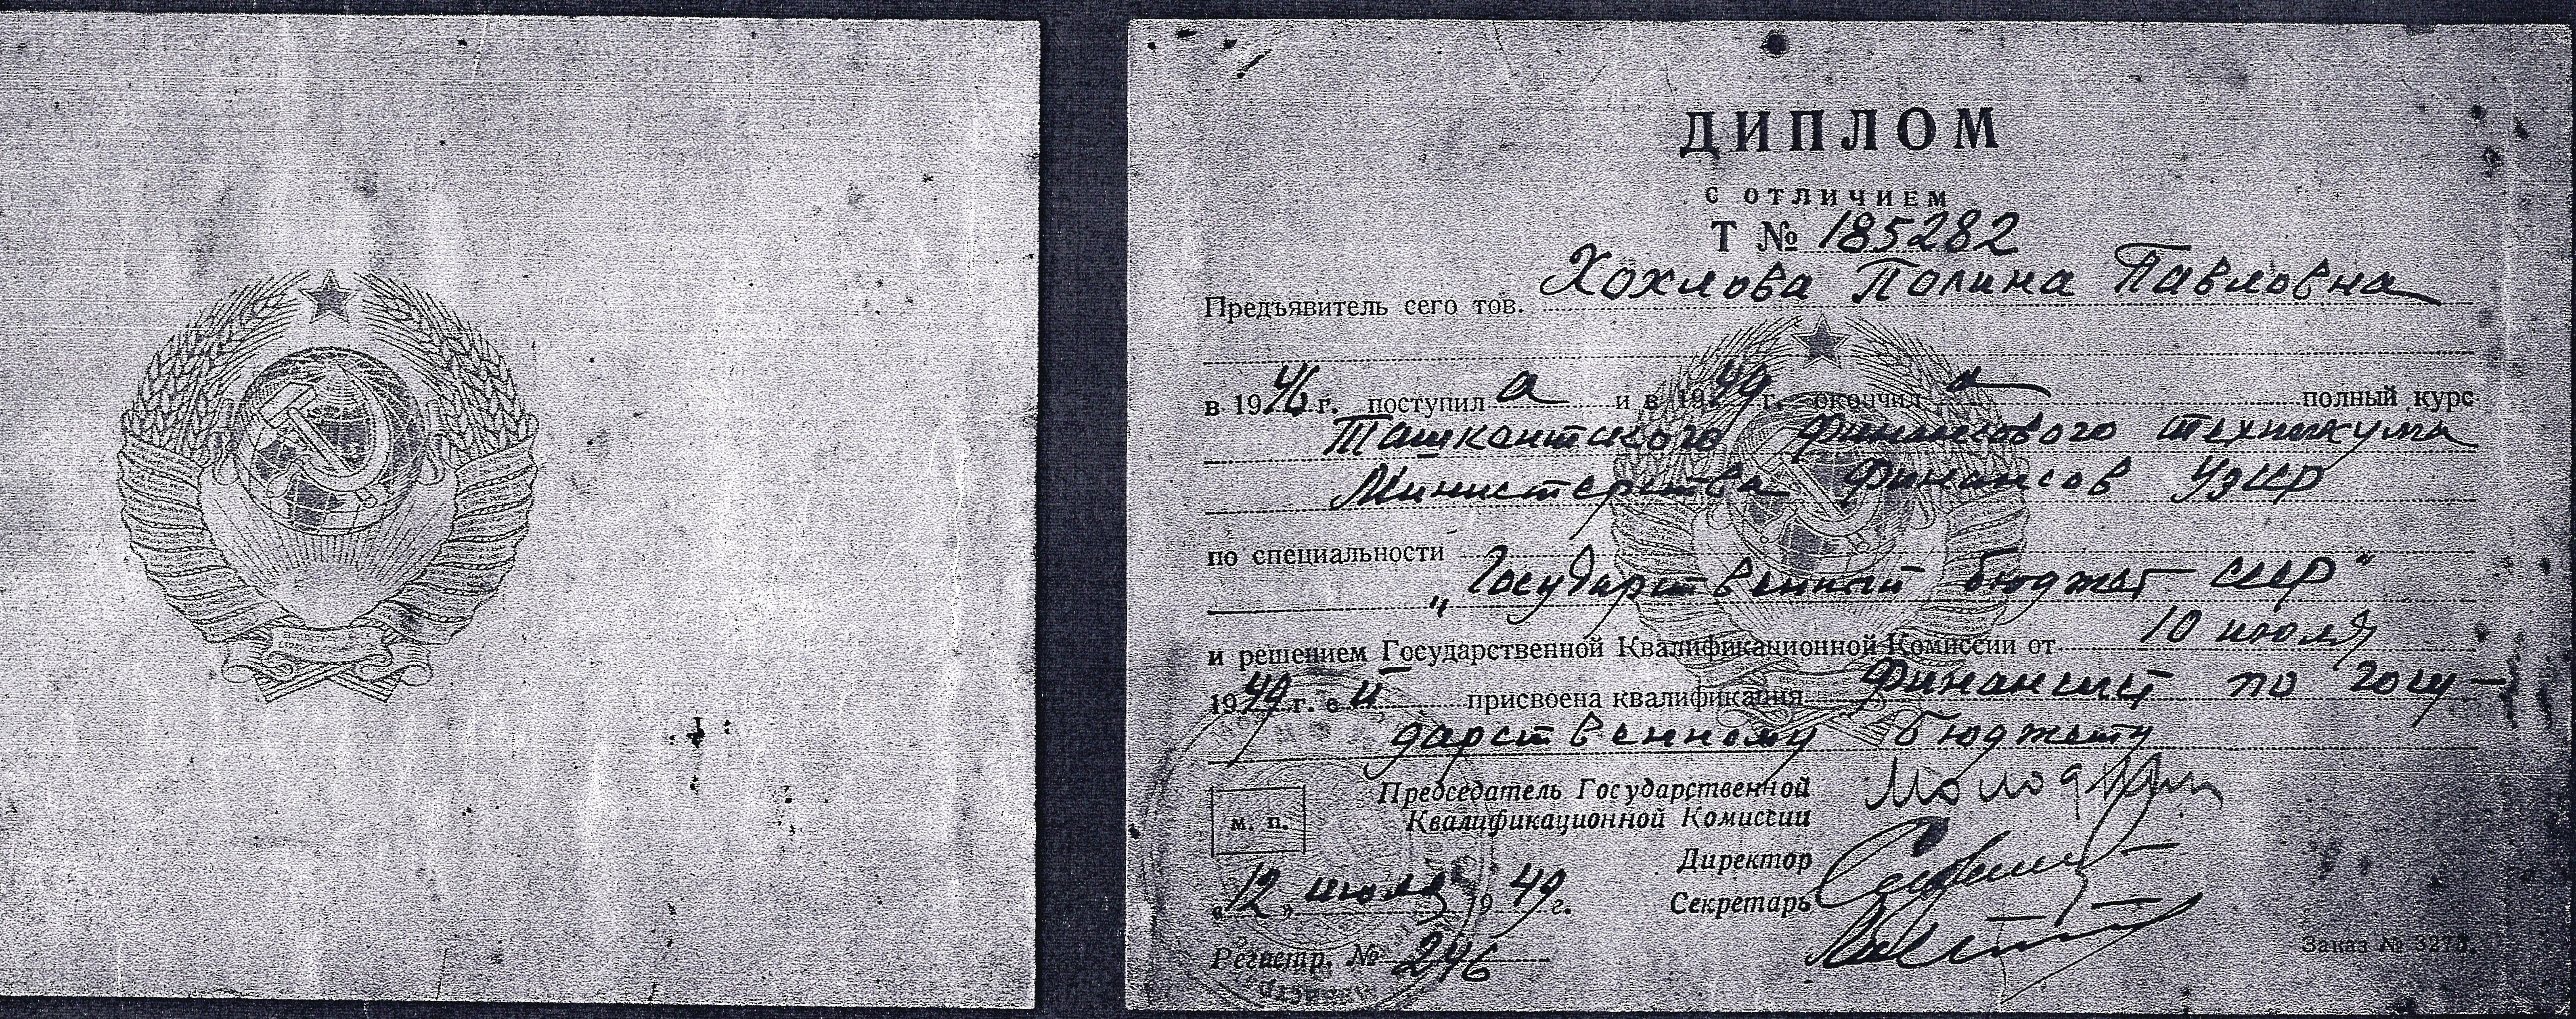 ДИПЛОМ
С ОТЛИЧИЕМ
Т № 185282
Предъявитель сего тов. Хохлова Полина Павловна
в 1946 г. поступила и в 1949 г. окончила полный курс
Ташкентского финансового техникума
Министерства Финансов УзССР
по специальности
„Государственный бюджет СССР"
и решением Государственной Квалификационной Комиссии от 10 июля
1949 г. ей присвоена квалификация Финансист по госу-
дарственному бюджету
Председатель Государственной
Квалификационной Комиссии
м. п.
Директор
Секретарь
«12» июля 1949 г.
Регистр. № 246
Заказ №